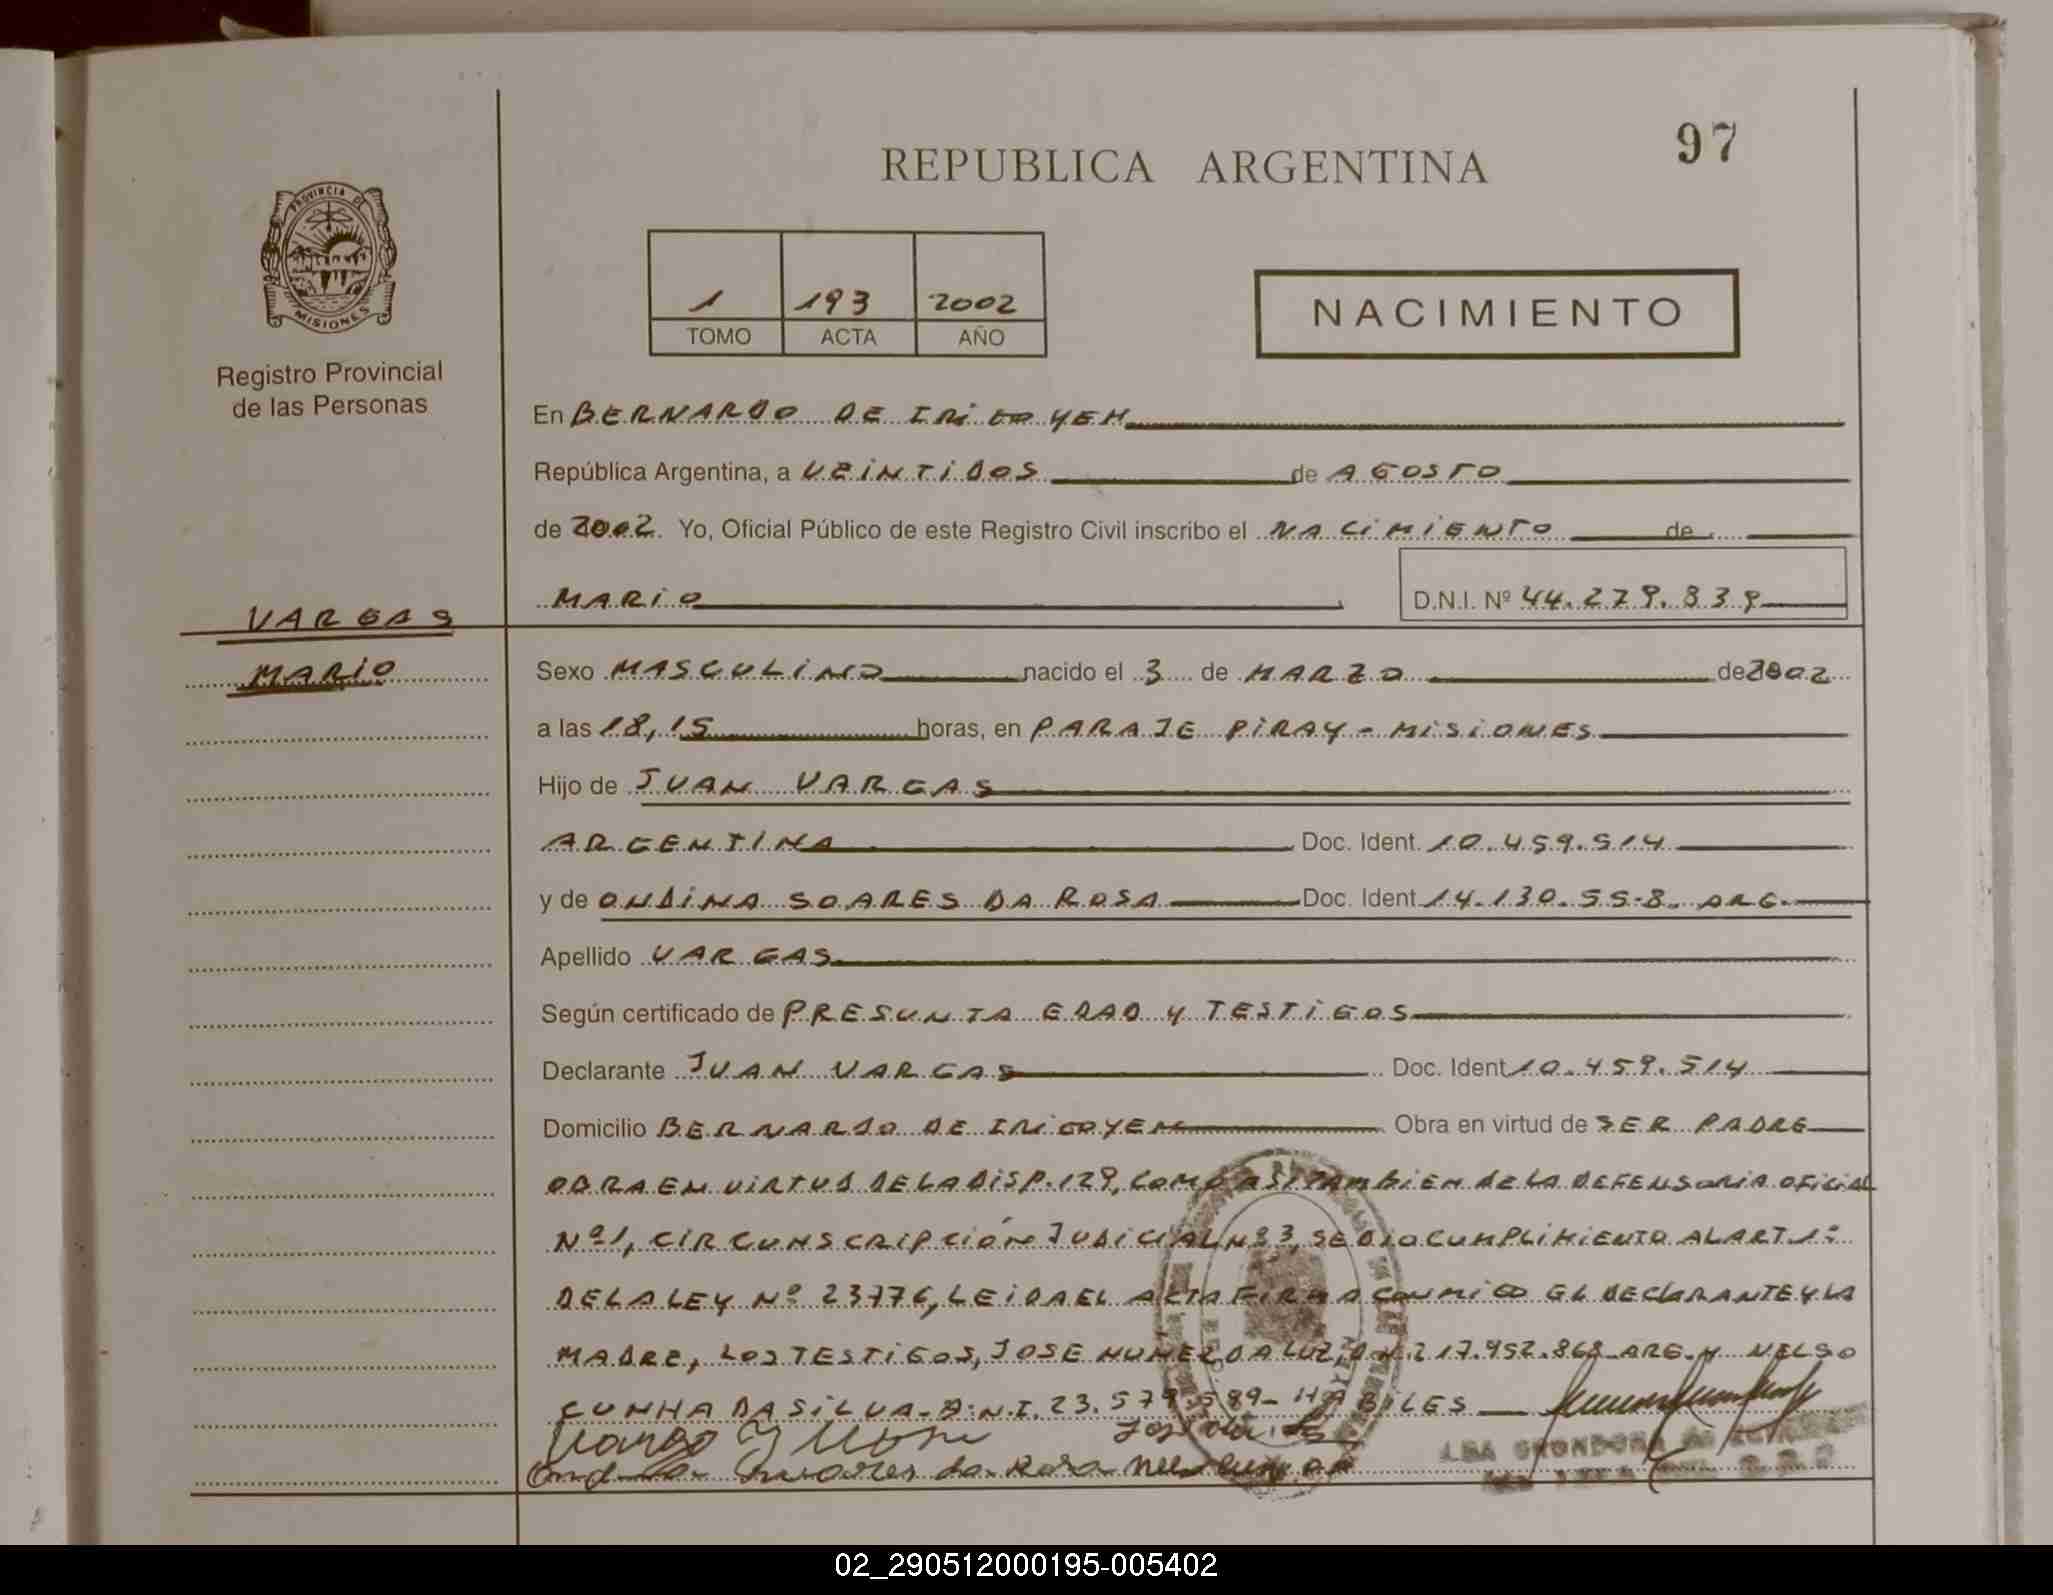 97
REPUBLICA ARGENTINA
PROVINCIA DE
MISIONES
Registro Provincial
de las Personas
1 193 2002
TOMO ACTA AÑO
NACIMIENTO
En BERNARDO DE IRIGOYEN
República Argentina, a VEINTIDOS de AGOSTO
de 2002. Yo, Oficial Público de este Registro Civil inscribo el NACIMIENTO de
MARIO D.N.I. Nº 44.279.839
VARGAS
MARIO
Sexo MASCULINO nacido el 3 de MARZO de 2002
a las 18,15 horas, en PARAJE PIRAY - MISIONES
Hijo de JUAN VARGAS
ARGENTINA Doc. Ident. 10.459.514
y de ONDINA SOARES DA ROSA Doc. Ident 14.130.558. ARG.
Apellido VARGAS
Según certificado de PRESUNTA EDAD Y TESTIGOS
Declarante JUAN VARGAS Doc. Ident 10.459.514
Domicilio BERNARDO DE IRIGOYEN Obra en virtud de SER PADRE
OBRA EN VIRTUD DE LA DISP. 129, COMO ASI TAMBIEN DE LA DEFENSORIA OFICIAL
Nº 1, CIRCUNSCRIPCIÓN JUDICIAL Nº 3, SE DIO CUMPLIMIENTO AL ART. 1º
DE LA LEY Nº 23776, LEIDA EL ACTA FIRMA CONMIGO EL DECLARANTE Y LA
MADRE, LOS TESTIGOS, JOSE NUNEZ DA LUZ, D.N.I 17.952.868 ARG. Y NELSO
CUNHA DA SILVA - D.N.I. 23.579.589 - HABILES
Soares da Rosa
02_290512000195-005402